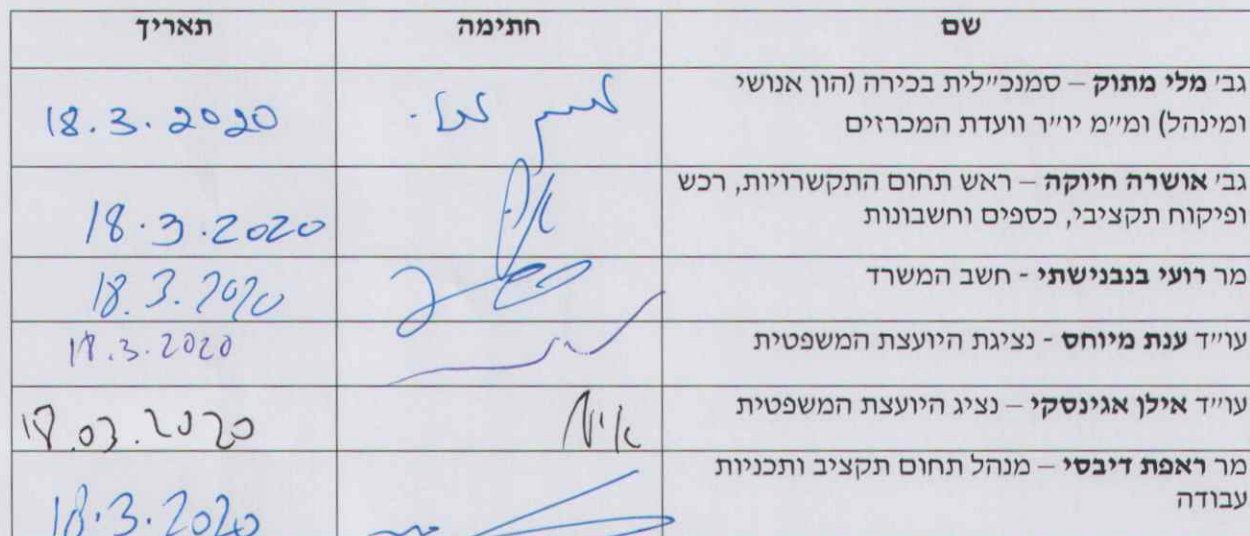 שם חתימה תאריך
גב׳ מלי מתוק – סמנכ״לית בכירה (הון אנושי 18.3.2020
ומינהל) ומ״מ יו״ר וועדת המכרזים
גב׳ אושרה חיוקה – ראש תחום התקשרויות, רכש 18.3.2020
ופיקוח תקציבי, כספים וחשבונות
מר רועי בנבנישתי - חשב המשרד 18.3.2020
עו״ד ענת מיוחס - נציגת היועצת המשפטית 18.3.2020
עו״ד אילן אגינסקי – נציג היועצת המשפטית 18.03.2020
מר ראפת דיבסי – מנהל תחום תקציב ותכניות 18.3.2020
עבודה